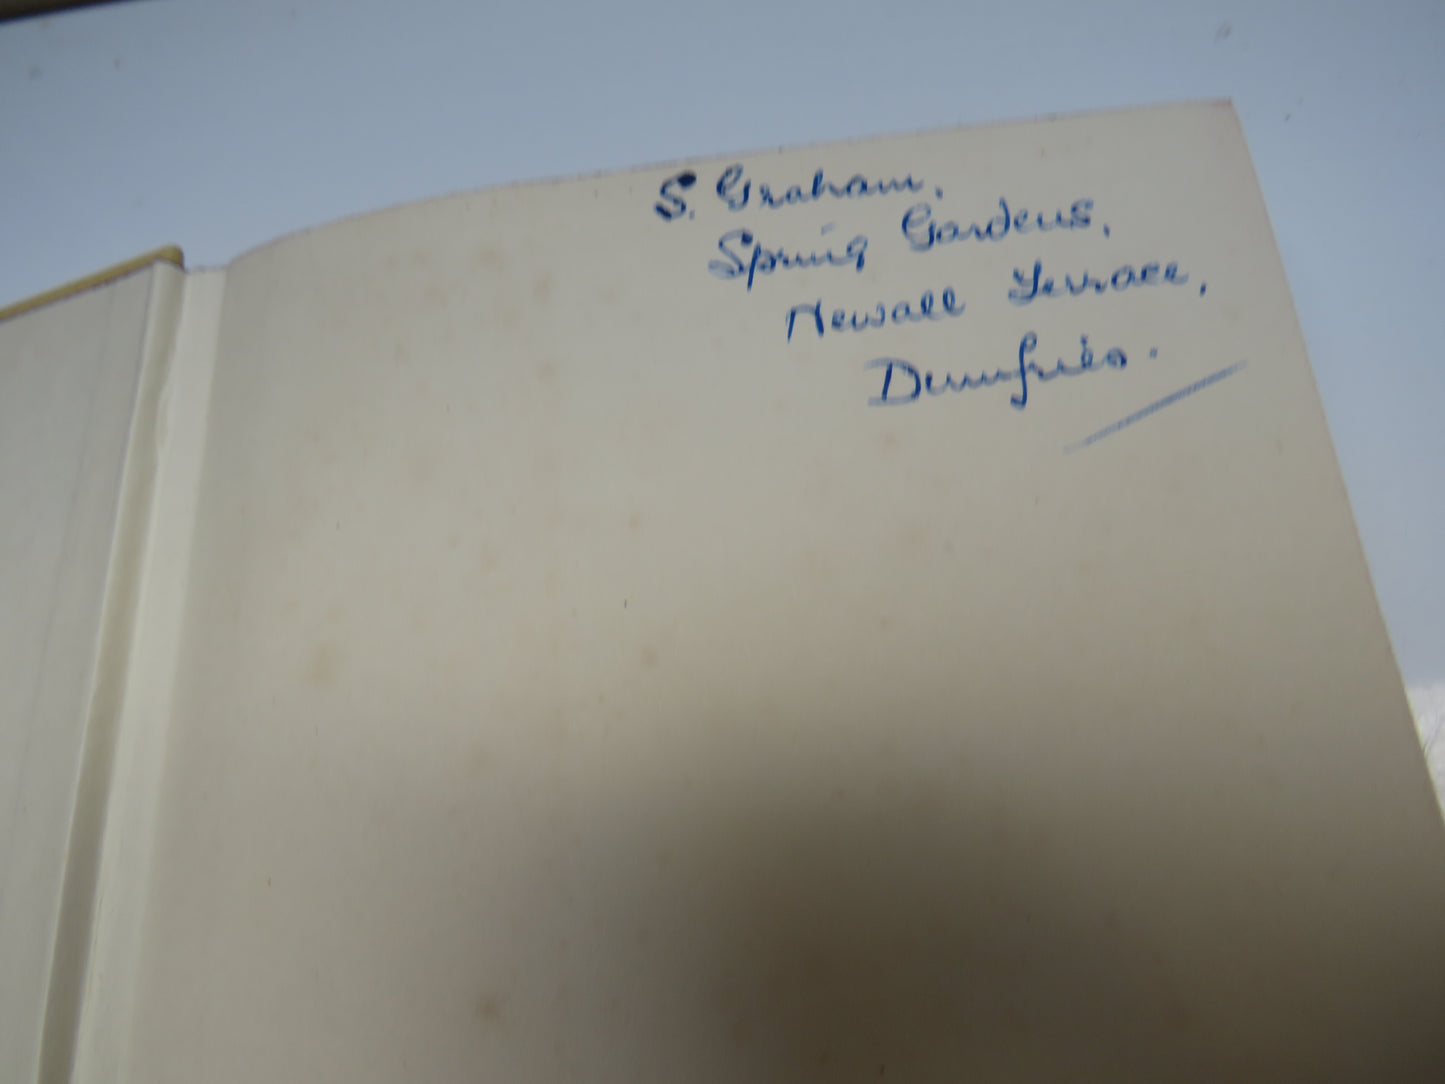 S. Graham,
Spring Gardens,
Newall Terrace,
Dumfries.